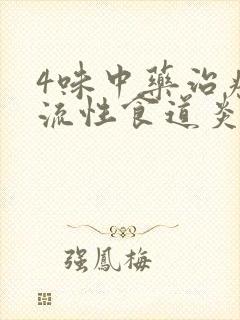 4味中藥治
流性食道炎
强鳳梅